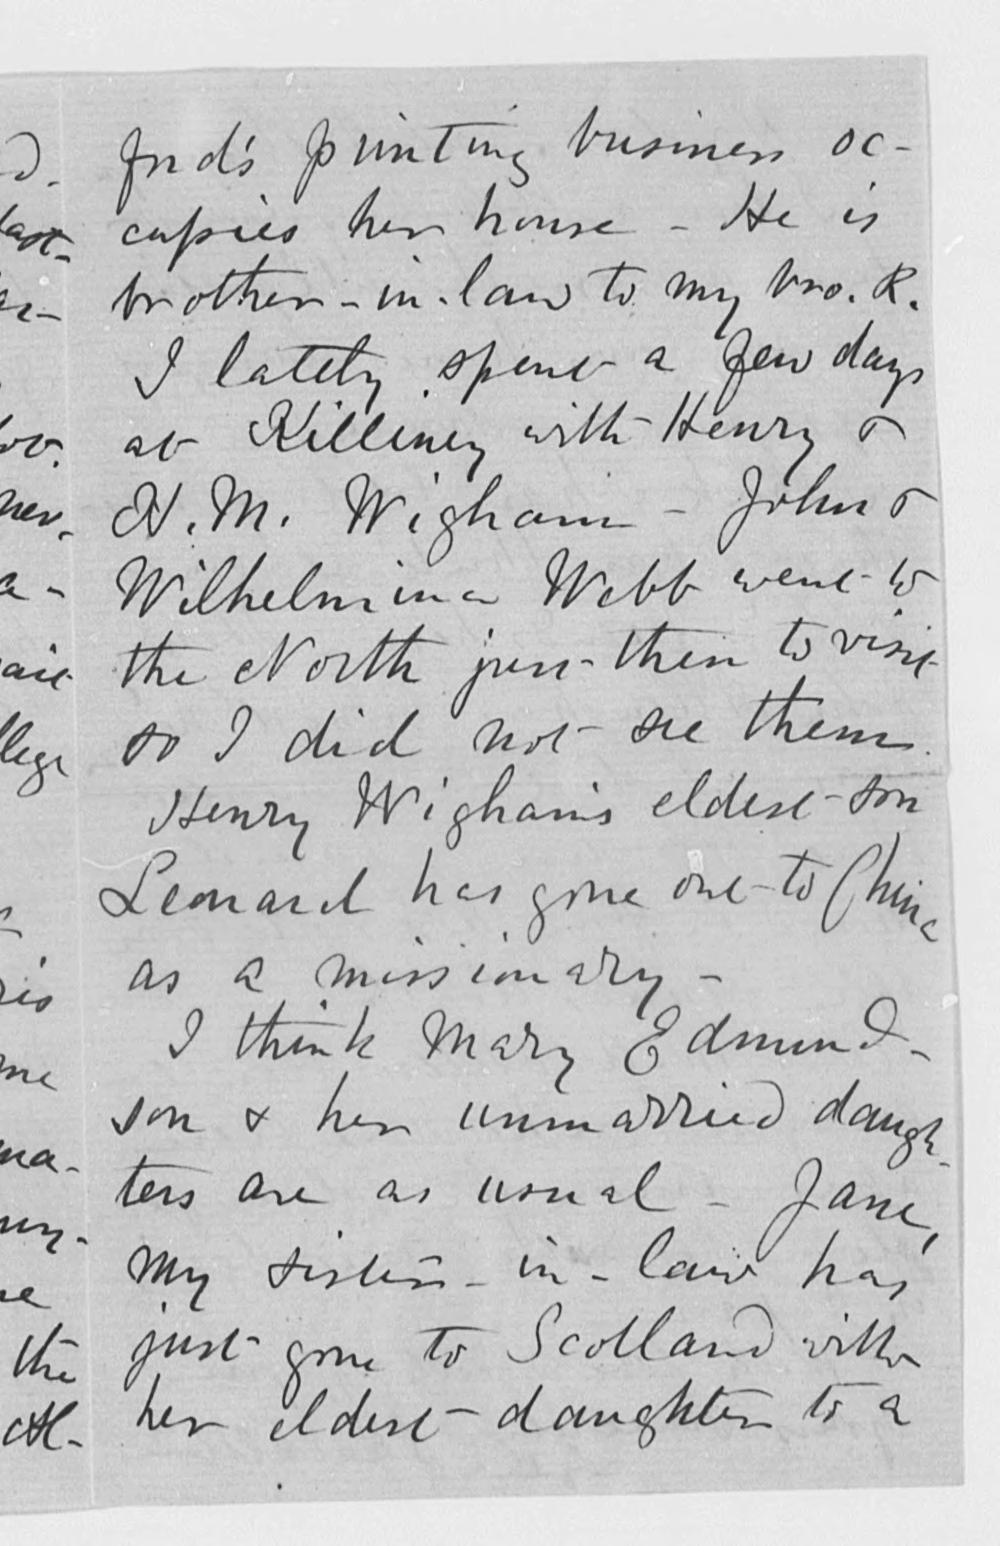 frnd's printing business oc-
cupies her house - He is
brother-in-law to my bro. R.
I lately spent a few days
at Killiney with Henry &
H. M. Wigham - John &
Wilhelmina Webb went to
the North just then to visit
so I did not see them.
Henry Wigham's eldest son
Leonard has gone out to China
as a missionary -
I think Mary Edmund-
son & her unmarried daugh-
ters are as usual - Jane,
my sister-in-law has
just gone to Scotland with
her eldest daughter to a
the